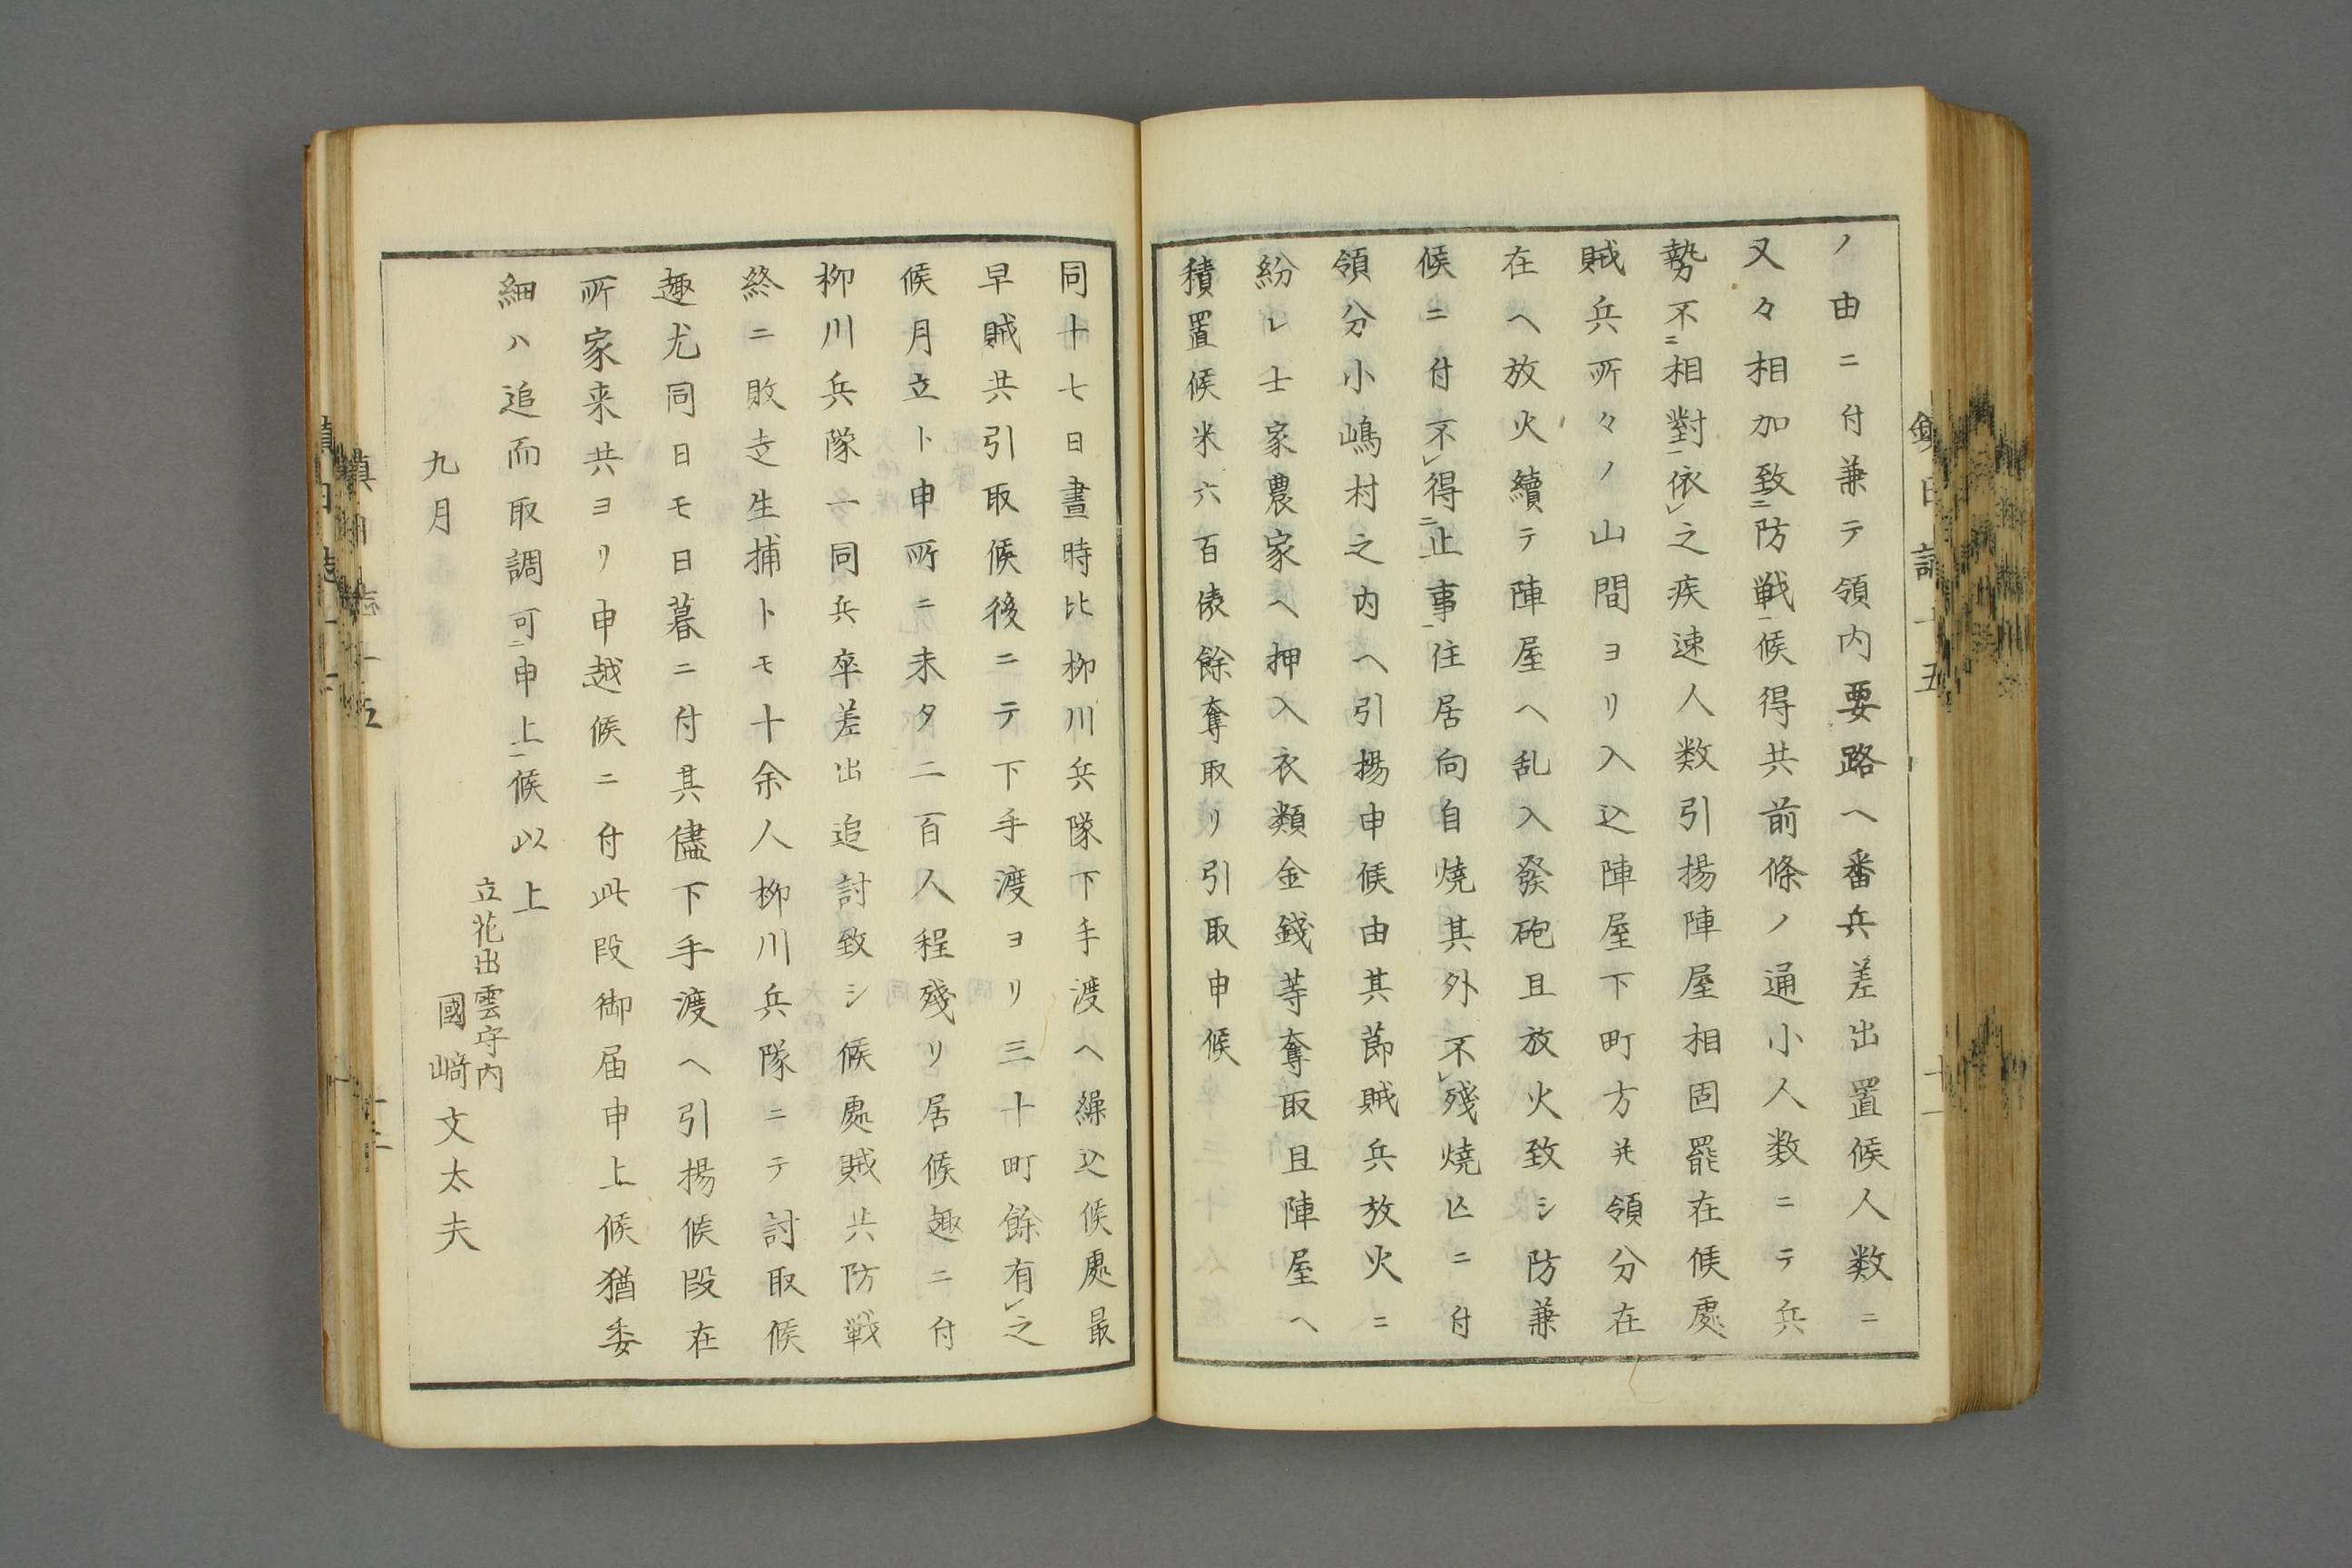 ノ由ニ付兼テ領内要路へ番兵差出置候人数ニ
又々相加致ニ防戦一候得共前條ノ通小人数ニテ兵
勢不ニ相對一依レ之疾速人数引揚陣屋相固罷在候處
賊兵所々ノ山間ヨリ入込陣屋下町方并領分在
在へ放火續テ陣屋へ乱入發砲且放火致シ防兼
候ニ付不レ得ニ止事一住居向自燒其外不レ殘燒亡ニ付
領分小嶋村之内へ引揚申候由其節賊兵放火ニ
紛レ士家農家へ押入衣類金錢等奪取且陣屋へ
積置候米六百俵餘奪取リ引取申候
同十七日晝時比柳川兵隊下手渡へ繰込候處最
早賊共引取候後ニテ下手渡ヨリ三十町餘有レ之
候月立ト申所ニ未タ二百人程殘リ居候趣ニ付
柳川兵隊一同兵卒差出追討致シ候處賊共防戦
終ニ敗走生捕トモ十余人柳川兵隊ニテ討取候
趣尤同日モ日暮ニ付其儘下手渡へ引揚候段在
所家来共ヨリ申越候ニ付此段御届申上候猶委
細ハ追而取調可ニ申上一候以上
立花出雲守内
九月
國﨑文太夫